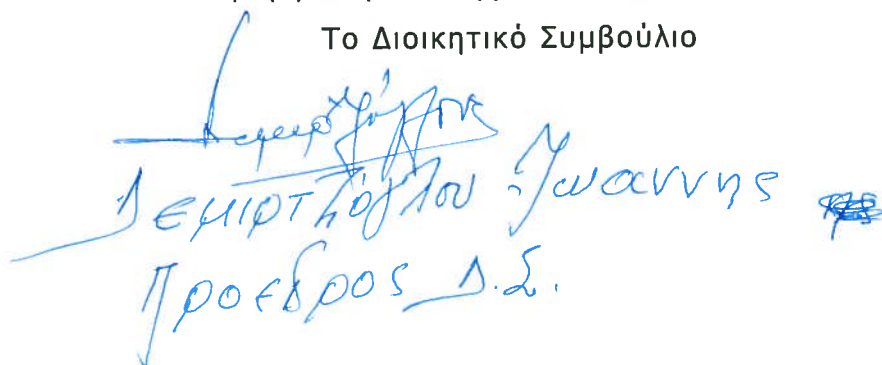 Το Διοικητικό Συμβούλιο
Δεμιρτζόγλου Ιωαννης
Προεδρος Δ.Σ.